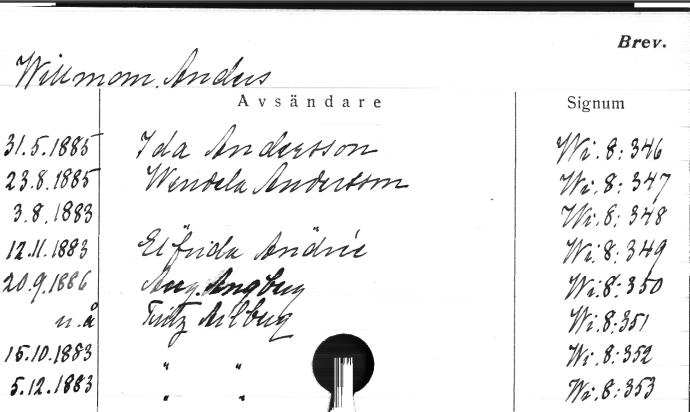 Brev.
Willmom. Anders
Avsändare Signum
31.5.1885 Ida Andersson Wi.8:346
23.8.1885 Wendela Andersson Wi.8:347
3.8.1883 Wi.8:348
12.11.1883 Elfrida Andrée Wi.8:349
20.9.1886 Aug. Wi.8:350
n.å Fritz Wi.8:351
15.10.1883 " " Wi.8:352
5.12.1883 " " Wi.8:353